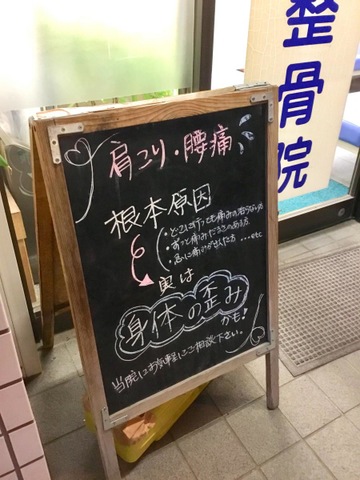 整骨院
肩こり・腰痛
根本原因
・どこに行っても痛みの治らない方
・ずっと痛みだるさのある方
・急に痛みがでた方 …etc
実は
身体の歪み
かも!
当院にお気軽にご相談下さい。